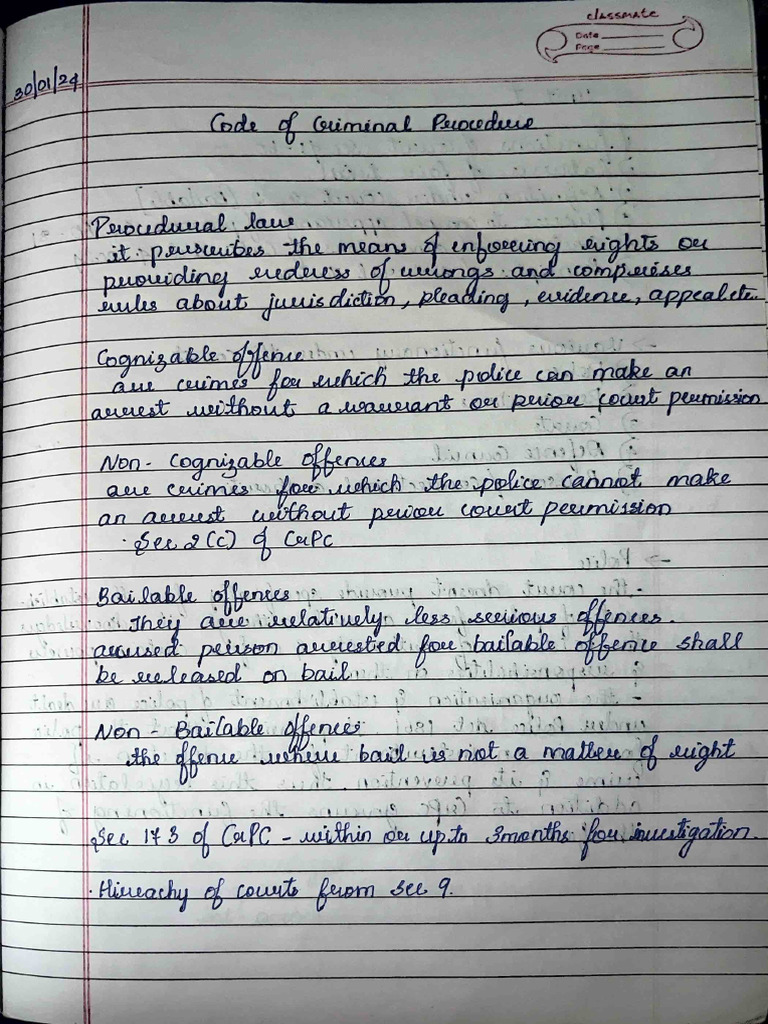 classmate
Date
Page
30/01/24
Code of Criminal Procedure
Procedural law
it prescribes the means of enforcing rights or
providing redress of wrongs and comprises
rules about jurisdiction, pleading, evidence, appeal etc.
Cognizable offence
are crimes for which the police can make an
arrest without a warrant or prior court permission
Non - Cognizable offences
are crimes for which the police cannot make
an arrest without prior court permission
· Sec 2(c) of CrPC
Bailable offences
They are relatively less serious offences.
accused person arrested for bailable offence shall
be released on bail
Non - Bailable offences
the offence where bail is not a matter of right
Sec 173 of CrPC - within or up to 3months for investigation.
· Hireachy of courts from sec 9.